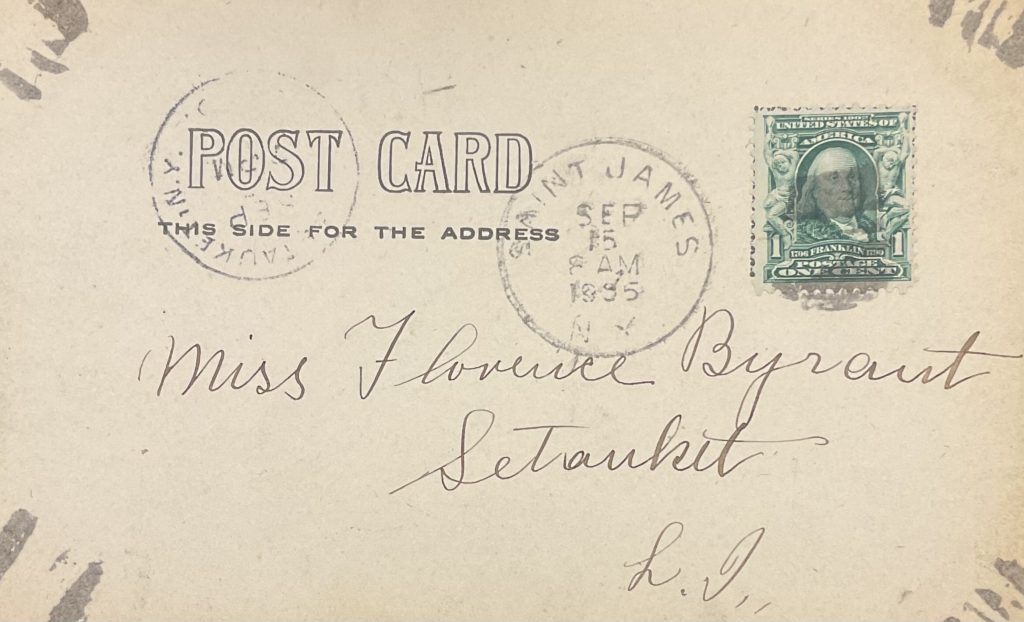 POST CARD
THIS SIDE FOR THE ADDRESS
SEP
N.Y.
SAINT JAMES
SEP
15
8 AM
1905
N Y
SERIES 1902
UNITED STATES OF
AMERICA
1 1706 FRANKLIN 1790 1
POSTAGE
ONE CENT
Miss Florence Byrant
Setauket
L.I.,